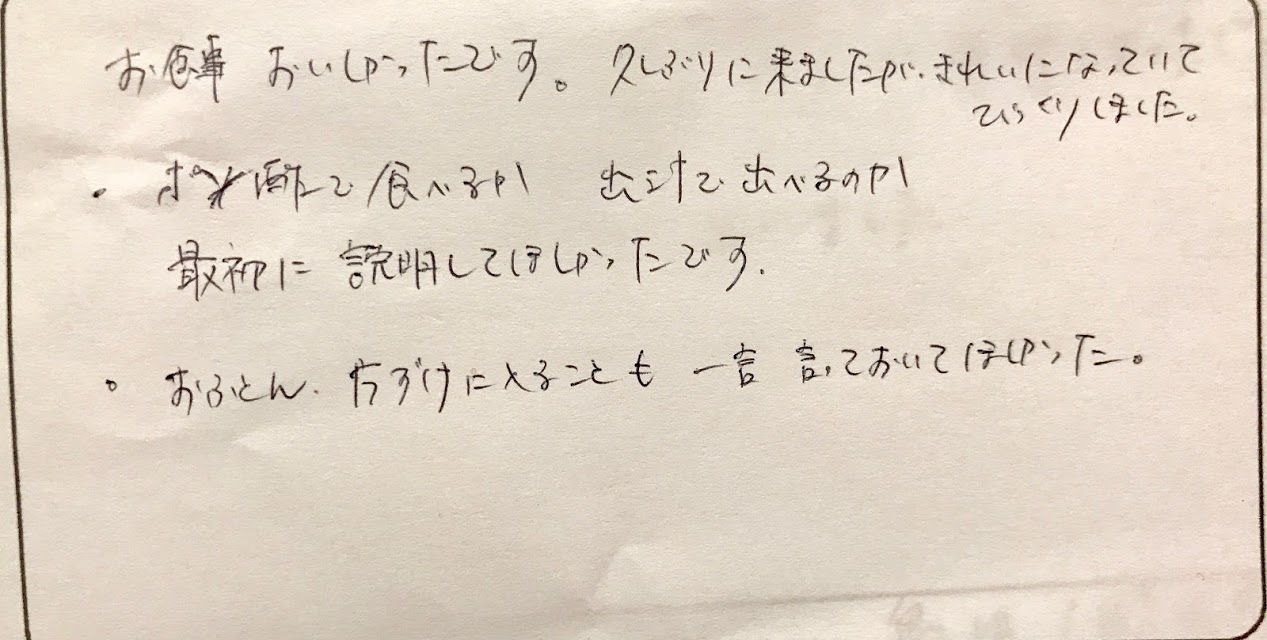 お食事 おいしかったです。久しぶりに来ましたが、きれいになっていて
びっくりしました。
・ ポン酢で食べるか 出汁で出べるのか
最初に 説明してほしかったです.
・ おふとん、片づけに入ることも 一言 言っておいてほしかった。